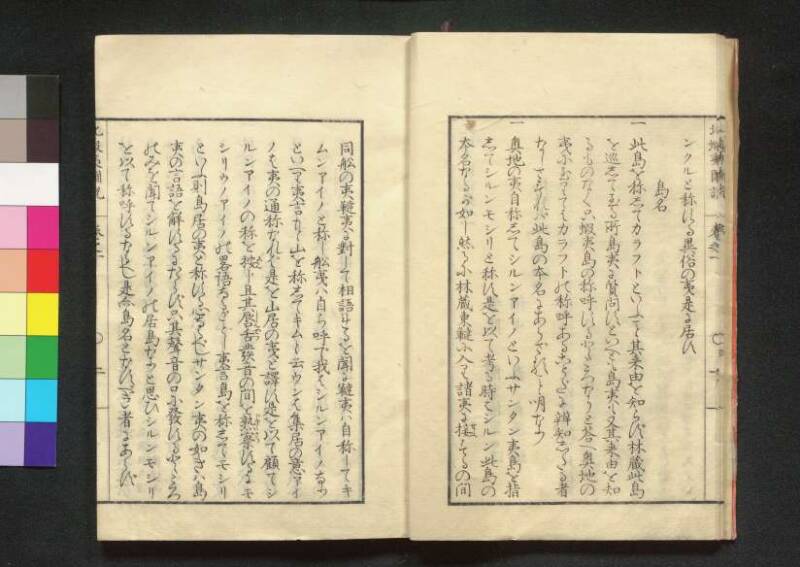 ンクルと称する異俗の夷是に居す
島名
一 此島を称してカラフトといへども其来由を知らず林蔵此島
を巡して至る所島夷に質問すといへども島夷も又其来由を知
るものなく只蝦夷島の称呼するところなりと答へ奥地の
夷に至ててはカラフトの称呼あることだに辨知したる者
なし
一 奥地の夷自称してシルンアイノといふサンタン夷島を指
してシルンモシリと称す是を以て考る時はシルン此島の
本名なるが如し然るに林蔵東韃に入て諸夷に接するの間
同船の夷韃夷に對して相語することを聞に韃夷は自称してキ
ムンアイノと称し船夷は自ら呼で我はシルンアイノなり
といへり夷言に山を称してキムと云ウンは集居の意アイ
ノは夷の通称なれば是を山居の夷と譯す是を以て顧てシ
ルンアイノの称を按ずるに且其唇舌發音の間を熟察するにモ
シリウンアイノの畧語なるべし夷言島を称してモシリ
といふ則島居の夷と称するなるべしサンタン夷の如きは島
夷の言語を解するにあらず只其聲音の口に發するところ
のみを聞てシルンアイノの居島なりと思ひシルンモシリ
を以て称呼するなるべし是亦島名となすべき者にあらず